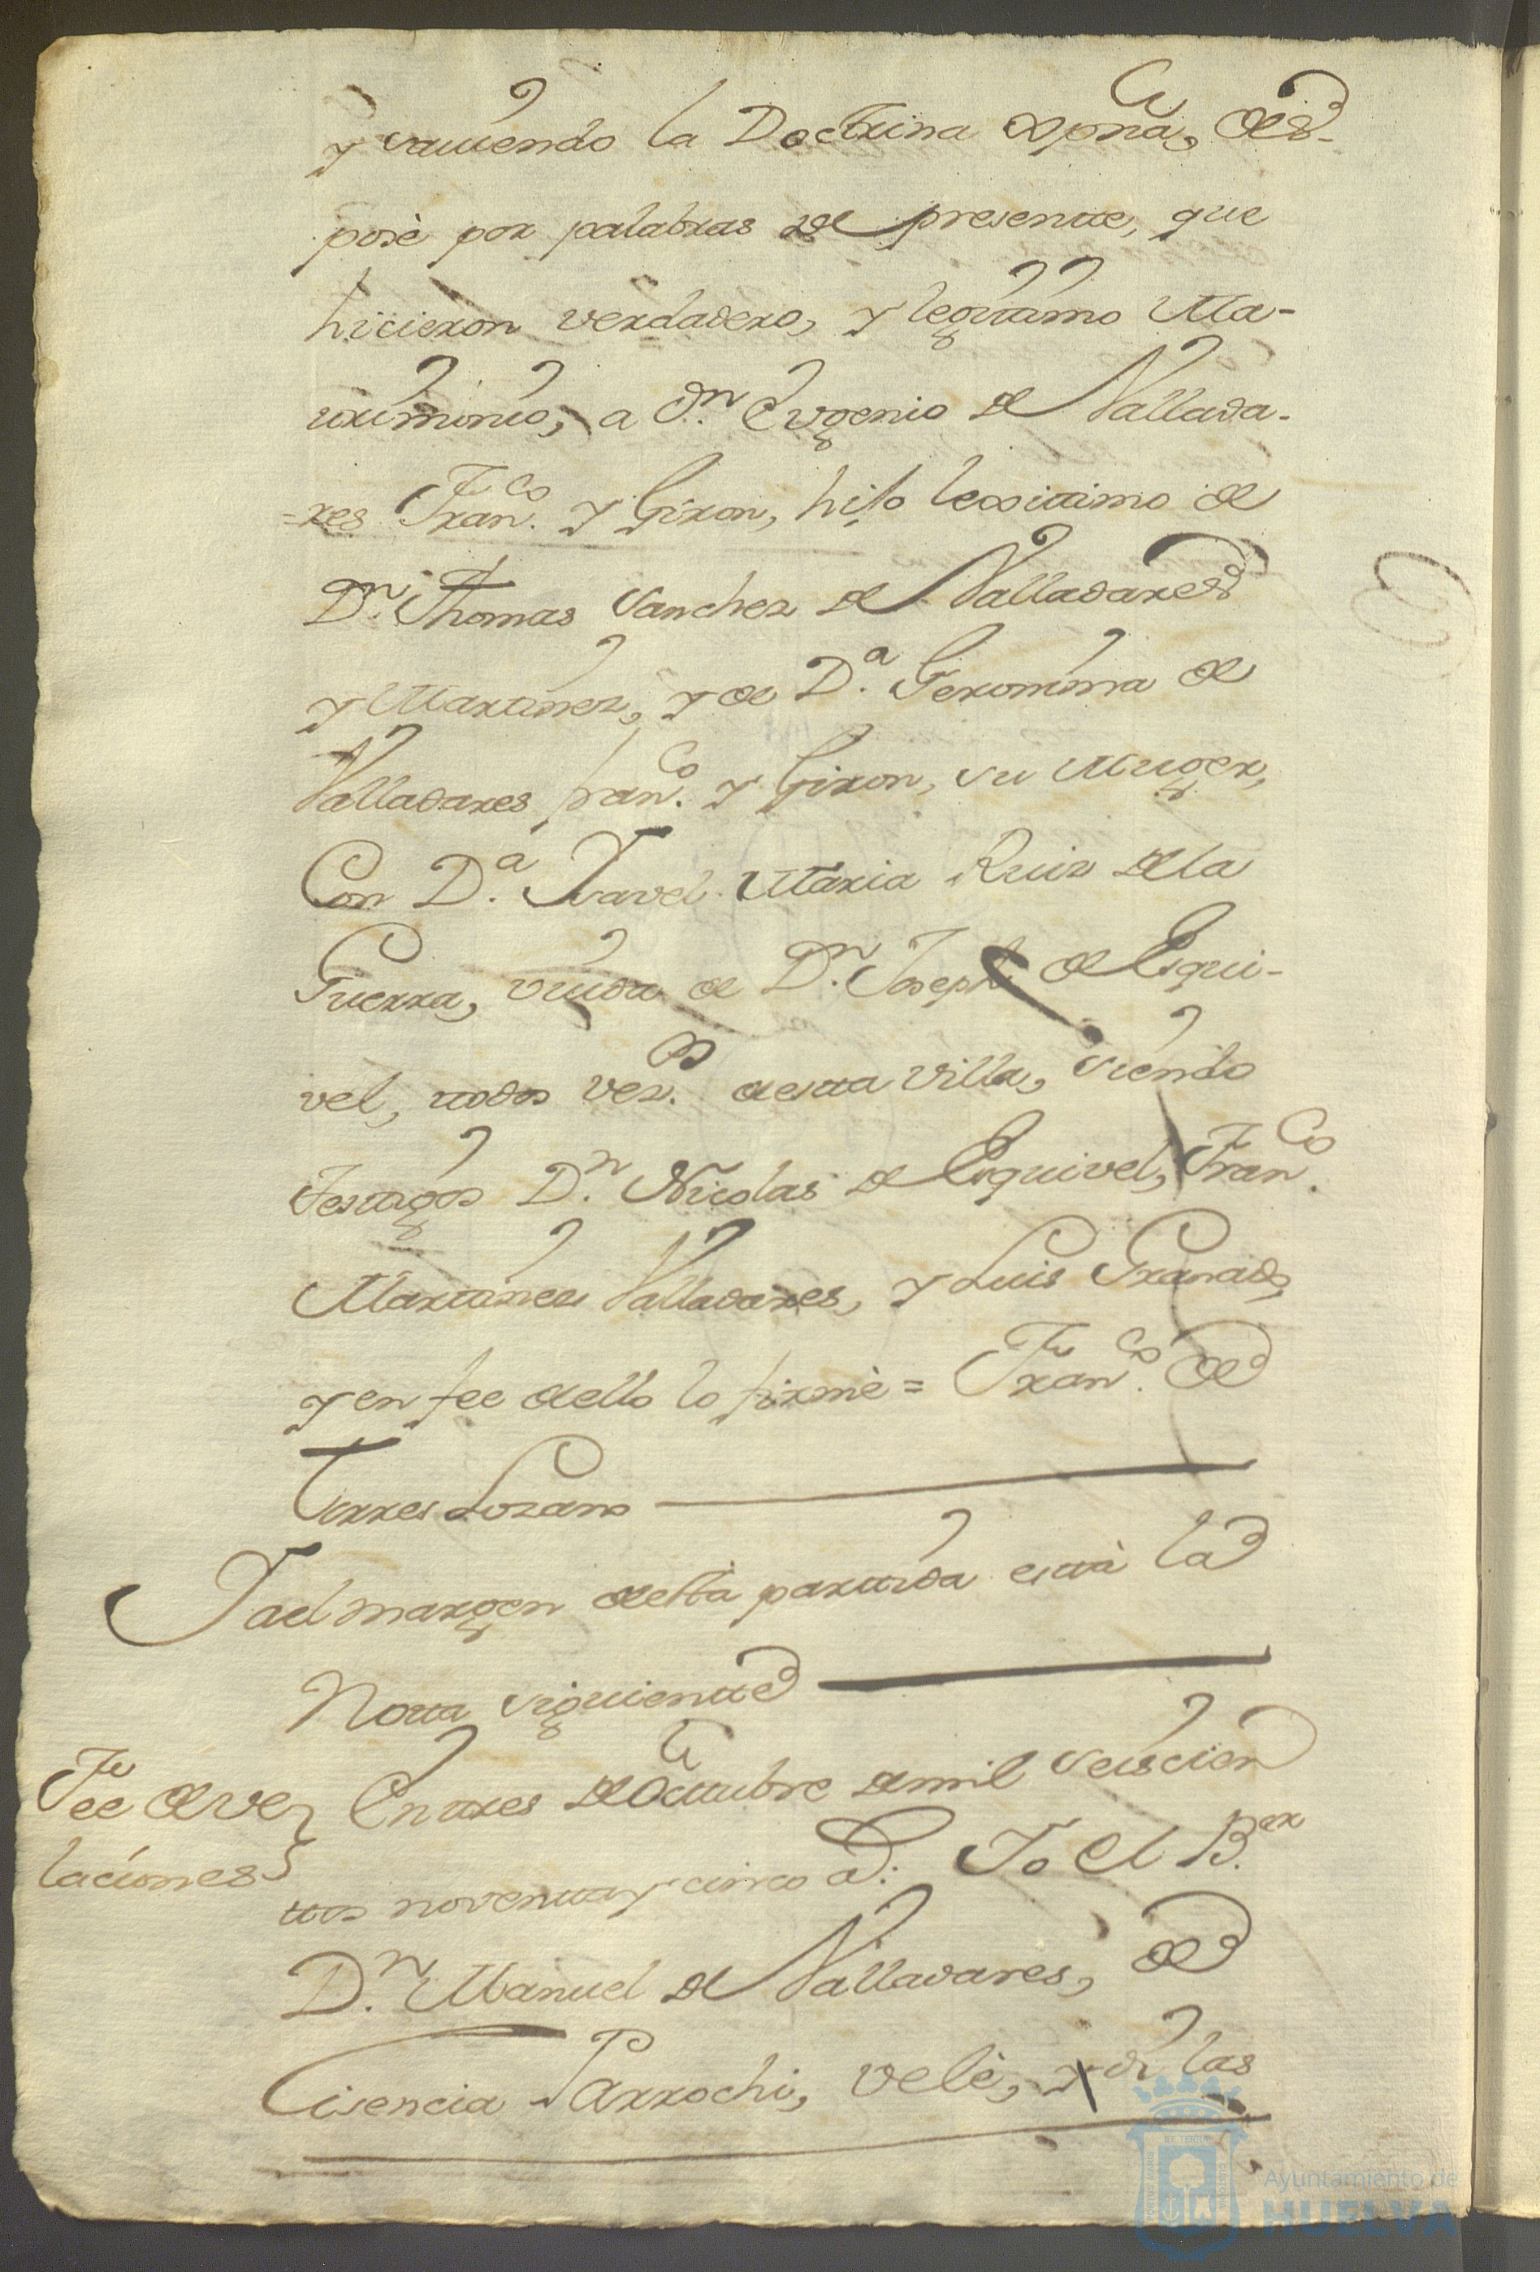 y saviendo la Doctrina Xpna, des-
posè por palabras de presente, que
hicieron verdadero, y legitimo Ma-
trimonio, a Dn. Eugenio de Vallada-
=res Franco. y Giron, hijo lexitimo de
Dn. Thomas Sanchez de Valladares
y Martinez, y de Da. Geronima de
Valladares franco. y Giron, su Muger,
Con Da. Isavel Maria Ruiz de la
Guerra, viuda de Dn. Joseph de Esqui-
vel, todos vezos. desta villa, siendo
Testigos Dn. Nicolas de Esquivel, Franco.
Martinez Valladares, y Luis Granado,
y en fee dello lo firmè = Franco. de
Torres Lozano
Y al margen desta partida està la
Nota siguiente
Fee de ve
laciones
En tres de Octubre de mil seiscien
tos noventa y cinco a. Yo el Ber.
Dn. Manuel de Valladares, de
Lisencia Parrochi, velè, y di las
Ayuntamiento de
HUELVA